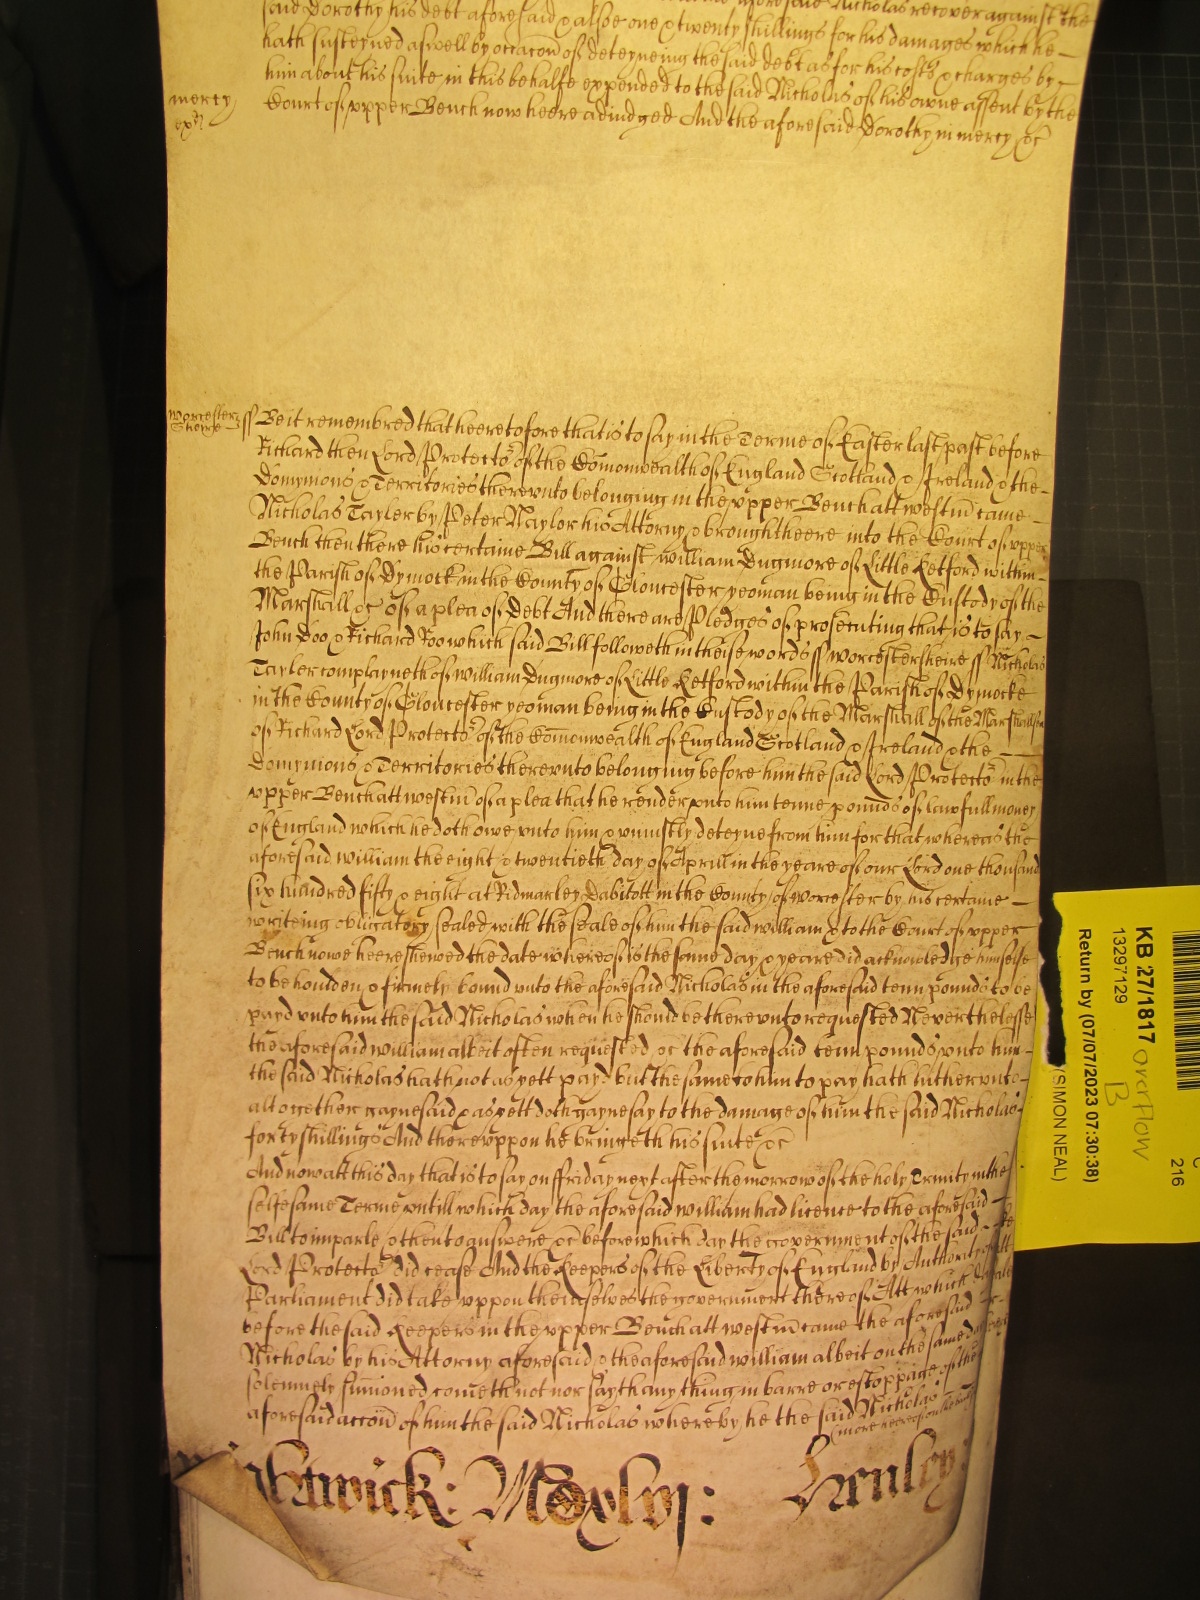 said Dorothy his debt aforesaid & alsoe one & twenty shillings for his damages which he
hath susteyned aswell by occacon of deteyneing the said debt as for his costs & charges by
him about his suite in this behalfe expended to the said Nicholas of his owne assent by the
Court of vpper Bench now heere adiudged And the aforesaid Dorothy in mercy &c
mercy
Worcester
sheire
ss Be it remembred that heeretofore that is to say in the Terme of Easter last past before
Richard then Lord Protector of the Comonwealth of England Scotland & Ireland & the
Domynions & Territories therevnto belonging in the vpper Bench att westm came
Nicholas Tayler by Peter Naylor his Attorny & brought heere into the Court of vpper
Bench then there his certaine Bill against William Dugmore of Little Ketford within
the Parish of Dymock in the County of Gloucester yeoman being in the Custody of the
Marshall &c of a plea of Debt And there are Pledges of prosecuting that is to say
John Doo & Richard Roo which said Bill followeth in theise words ss Worcestersheire ss Nicholas
Tayler complayneth of William Dugmore of Little Ketford within the Parish of Dymocke
in the County of Gloucester yeoman being in the Custody of the Marshall of the Marshallsea
of Richard Lord Protector of the Comonwealth of England Scotland & Ireland & the
Domynions & Territories therevnto belonging before him the said Lord Protector in the
vpper Bench att westm of a plea that he render vnto him tenne pounds of lawfull money
of England which he doth owe vnto him & vniustly deteyne from him for that whereas the
aforesaid William the eight & twentieth day of Aprill in the yeare of our Lord one thousand
six hundred fifty & eight at Ridmarley Dabitott in the County of Worcester by his certaine
writeing obligatory sealed with the seale of him the said William & to the Court of vpper
Bench nowe heere shewed the date whereof is the same day & yeare did acknowledge himselfe
to be houlden & firmely bound vnto the aforesaid Nicholas in the aforesaid tenn pounds to be
payd vnto him the said Nicholas when he should be therevnto requested Neverthelesse
the aforesaid William albeit often requested &c the aforesaid tenn pounds vnto him
the said Nicholas hath not as yett payd but the same to him to pay hath hitherto
altogether gaynesaid & as yett doth gaynesay to the damage of him the said Nicholas
forty shillings And therevppon he bringeth his suite &c
And now att this day that is to say on ffriday next after the morrow of the holy Trinity in the
selfe same Terme vntill which day the aforesaid William had licence to the aforesaid
Bill to imparle & then to answere &c before which day the government of the said
Lord Protector did cease And the Keepers of the Liberty of England by Authority of
Parliament did take vppon themselves the government thereof Att which day
before the said Keepers in the vpper Bench att westm came the aforesaid
Nicholas by his Attorny aforesaid & the aforesaid William albeit on the same day
solemnely sumoned cometh not nor sayth any thing in barre or estoppage of the
aforesaid accon of him the said Nicholas whereby he the said Nicholas
Henley
KB 27/1817 overflow
B
13297129
Return by (07/07/2023 07:30:38)
(SIMON NEAL)
216